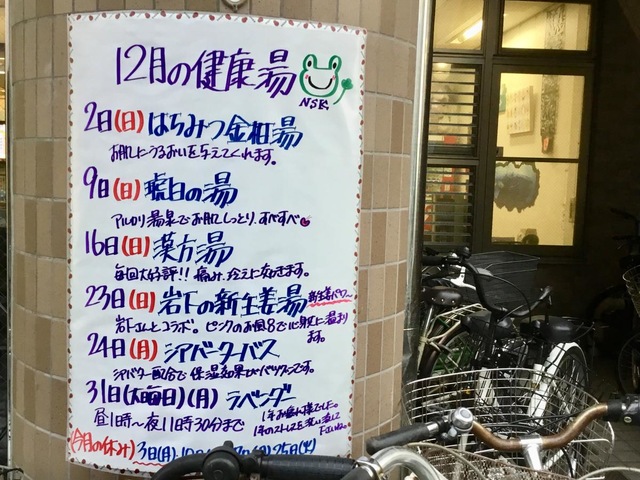 12月の健康湯
NSK
2日(日) はちみつ金柑湯
お肌にうるおいを与えてくれます。
9日(日) 琥珀の湯
アルカリ温泉でお肌しっとり、すべすべ
16日(日) 漢方湯
毎回大好評!! 痛み、冷えに効きます。
23日(日) 岩下の新生姜湯 新生姜パワ〜
岩下さんとコラボ。ピンクのお風呂で心身共に温まり
ます。
24日(月) シアバターバス
シアバター配合で保湿効果
31日(大晦日)(月) ラベンダー
昼1時〜夜11時30分まで
1年お疲れ様でした。
1年のストレスを洗い流して
下さいね。
(今月の休み) 3日(月) 25日(火)